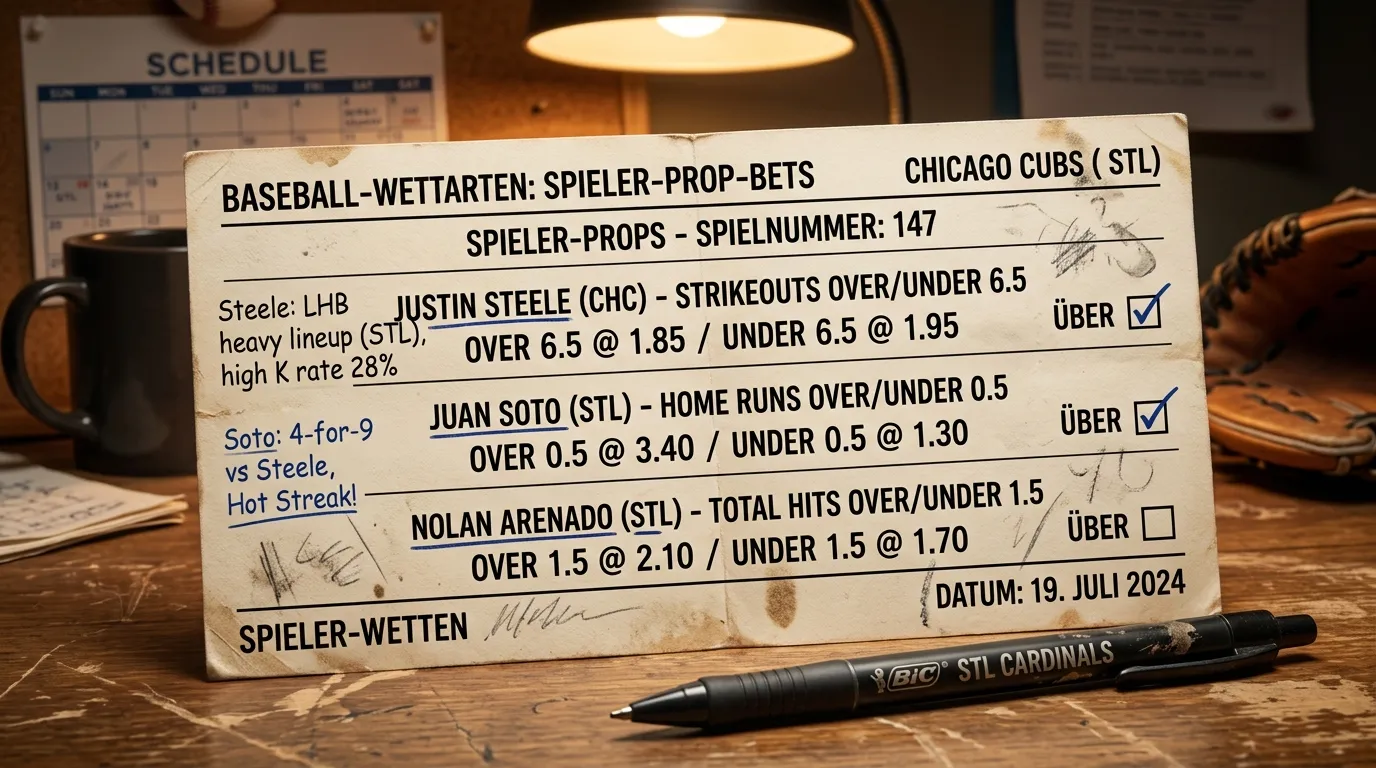 SCHEDULE
SUN MON TUE WED THU FRI SAT SAT
BASEBALL-WETTARTEN: SPIELER-PROP-BETS
CHICAGO CUBS ( STL)
SPIELER-PROPS - SPIELNUMMER: 147
Steele: LHB
heavy lineup (STL),
high K rate 28%
JUSTIN STEELE (CHC) - STRIKEOUTS OVER/UNDER 6.5
OVER 6.5 @ 1.85 / UNDER 6.5 @ 1.95
ÜBER
Soto: 4-for-9
vs Steele,
Hot Streak!
JUAN SOTO (STL) - HOME RUNS OVER/UNDER 0.5
OVER 0.5 @ 3.40 / UNDER 0.5 @ 1.30
ÜBER
NOLAN ARENADO (STL) - TOTAL HITS OVER/UNDER 1.5
OVER 1.5 @ 2.10 / UNDER 1.5 @ 1.70
ÜBER
SPIELER-WETTEN
DATUM: 19. JULI 2024
BIC STL CARDINALS